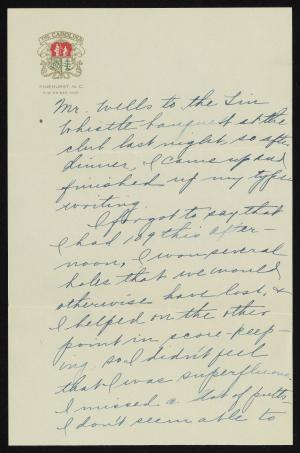 THE CAROLINA
PINEHURST, N. C.
Mr. Wells to the Tin
Whistle banquet at the
club last night, so after
dinner, I came up and
finished up my type
writing.
I forgot to say that
I had 109 this after-
noon, I won several
holes that we would
otherwise have lost, &
I helped on the other
point in score-keep-
ing, so I didn't feel
that I was superfluous.
I missed a lot of putts-
I don't seem able to